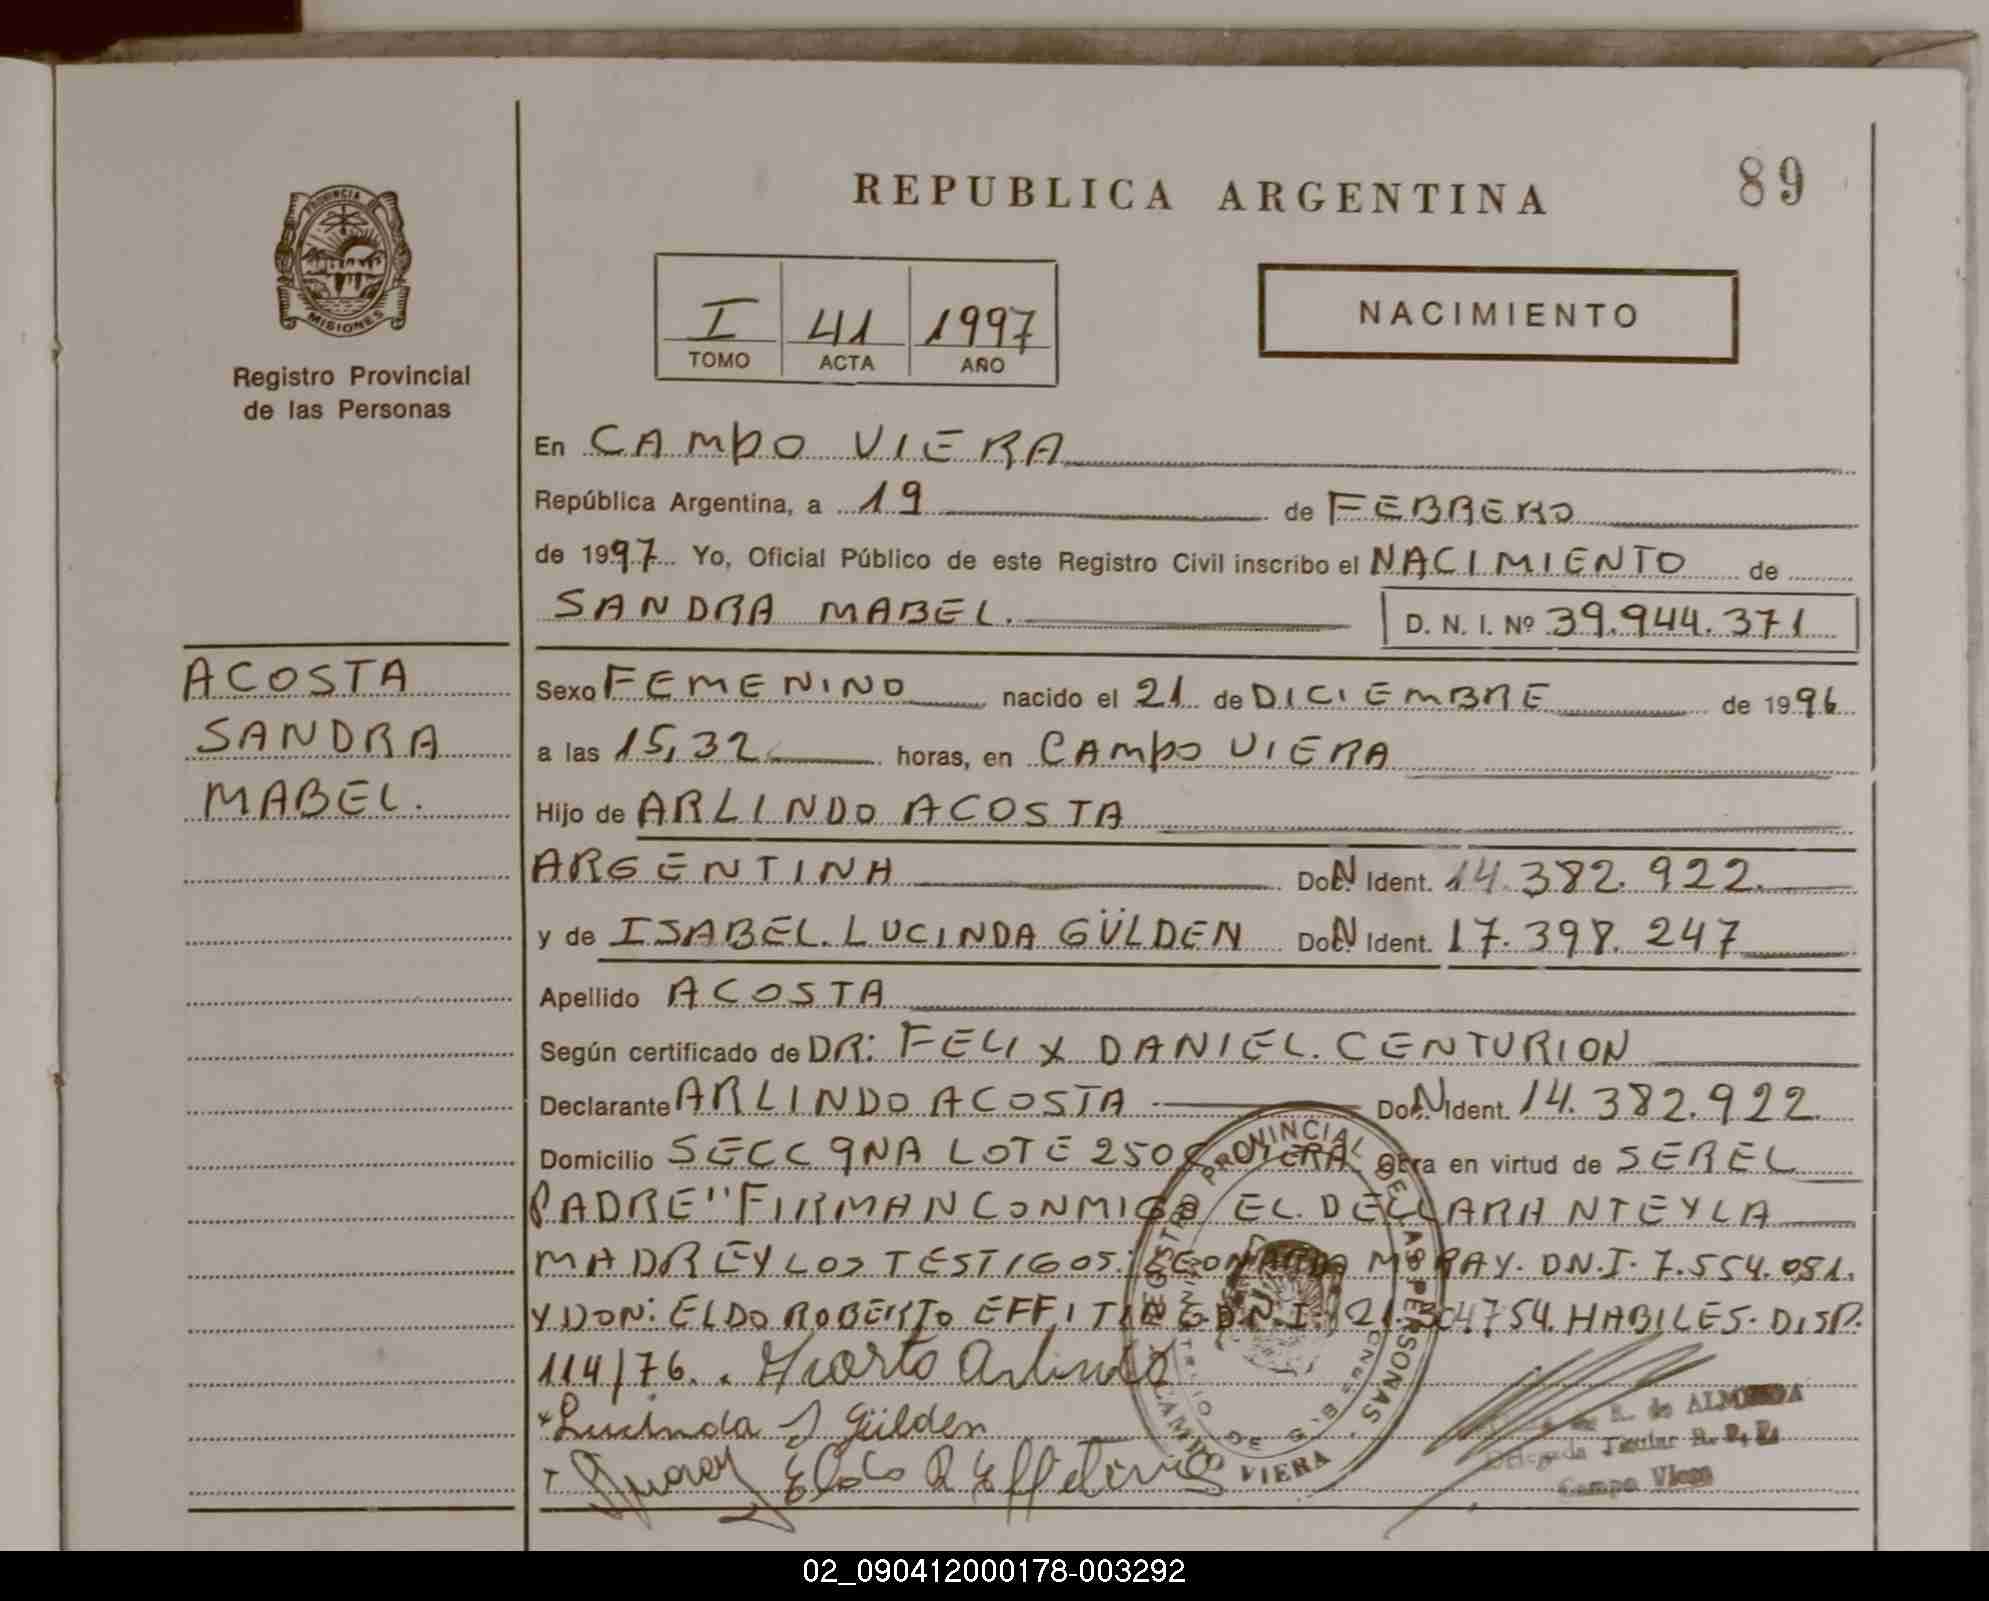 REPUBLICA ARGENTINA
89
PROVINCIA DE
MISIONES
Registro Provincial
de las Personas
I 41 1997
TOMO ACTA AÑO
NACIMIENTO
En CAMPO VIERA
República Argentina, a 19 de FEBRERO
de 1997 Yo, Oficial Público de este Registro Civil inscribo el NACIMIENTO de
SANDRA MABEL. D. N. I. Nº 39.944.371
ACOSTA
SANDRA
MABEL.
Sexo FEMENINO nacido el 21 de DICIEMBRE de 1996
a las 15,32 horas, en CAMPO VIERA
Hijo de ARLINDO ACOSTA
ARGENTINA Doc. N. Ident. 14.382.922.
y de ISABEL. LUCINDA GÜLDEN Doc. N. Ident. 17.398.247
Apellido ACOSTA
Según certificado de DR: FELIX DANIEL. CENTURION
Declarante ARLINDO ACOSTA Doc. N Ident. 14.382.922.
Domicilio SECC 9NA LOTE 250 VIERA Obra en virtud de SEREL
PADRE" FIRMAN CONMIGO EL. DECLARANTE Y LA
MADRE Y LOS TESTIGOS: MORAY. DN.I. 7.554.081.
Y DON: ELDO ROBERTO D.N.I. 4754. HABILES. DISP.
114/76. Acosta Arlindo
Lucinda I Gülden
Eldo R
REGISTRO PROVINCIAL DE LAS PERSONAS
CAMPO VIERA
de R. de ALMEIDA
Delegada Titular R. P. P.
Campo Viera
02_090412000178-003292